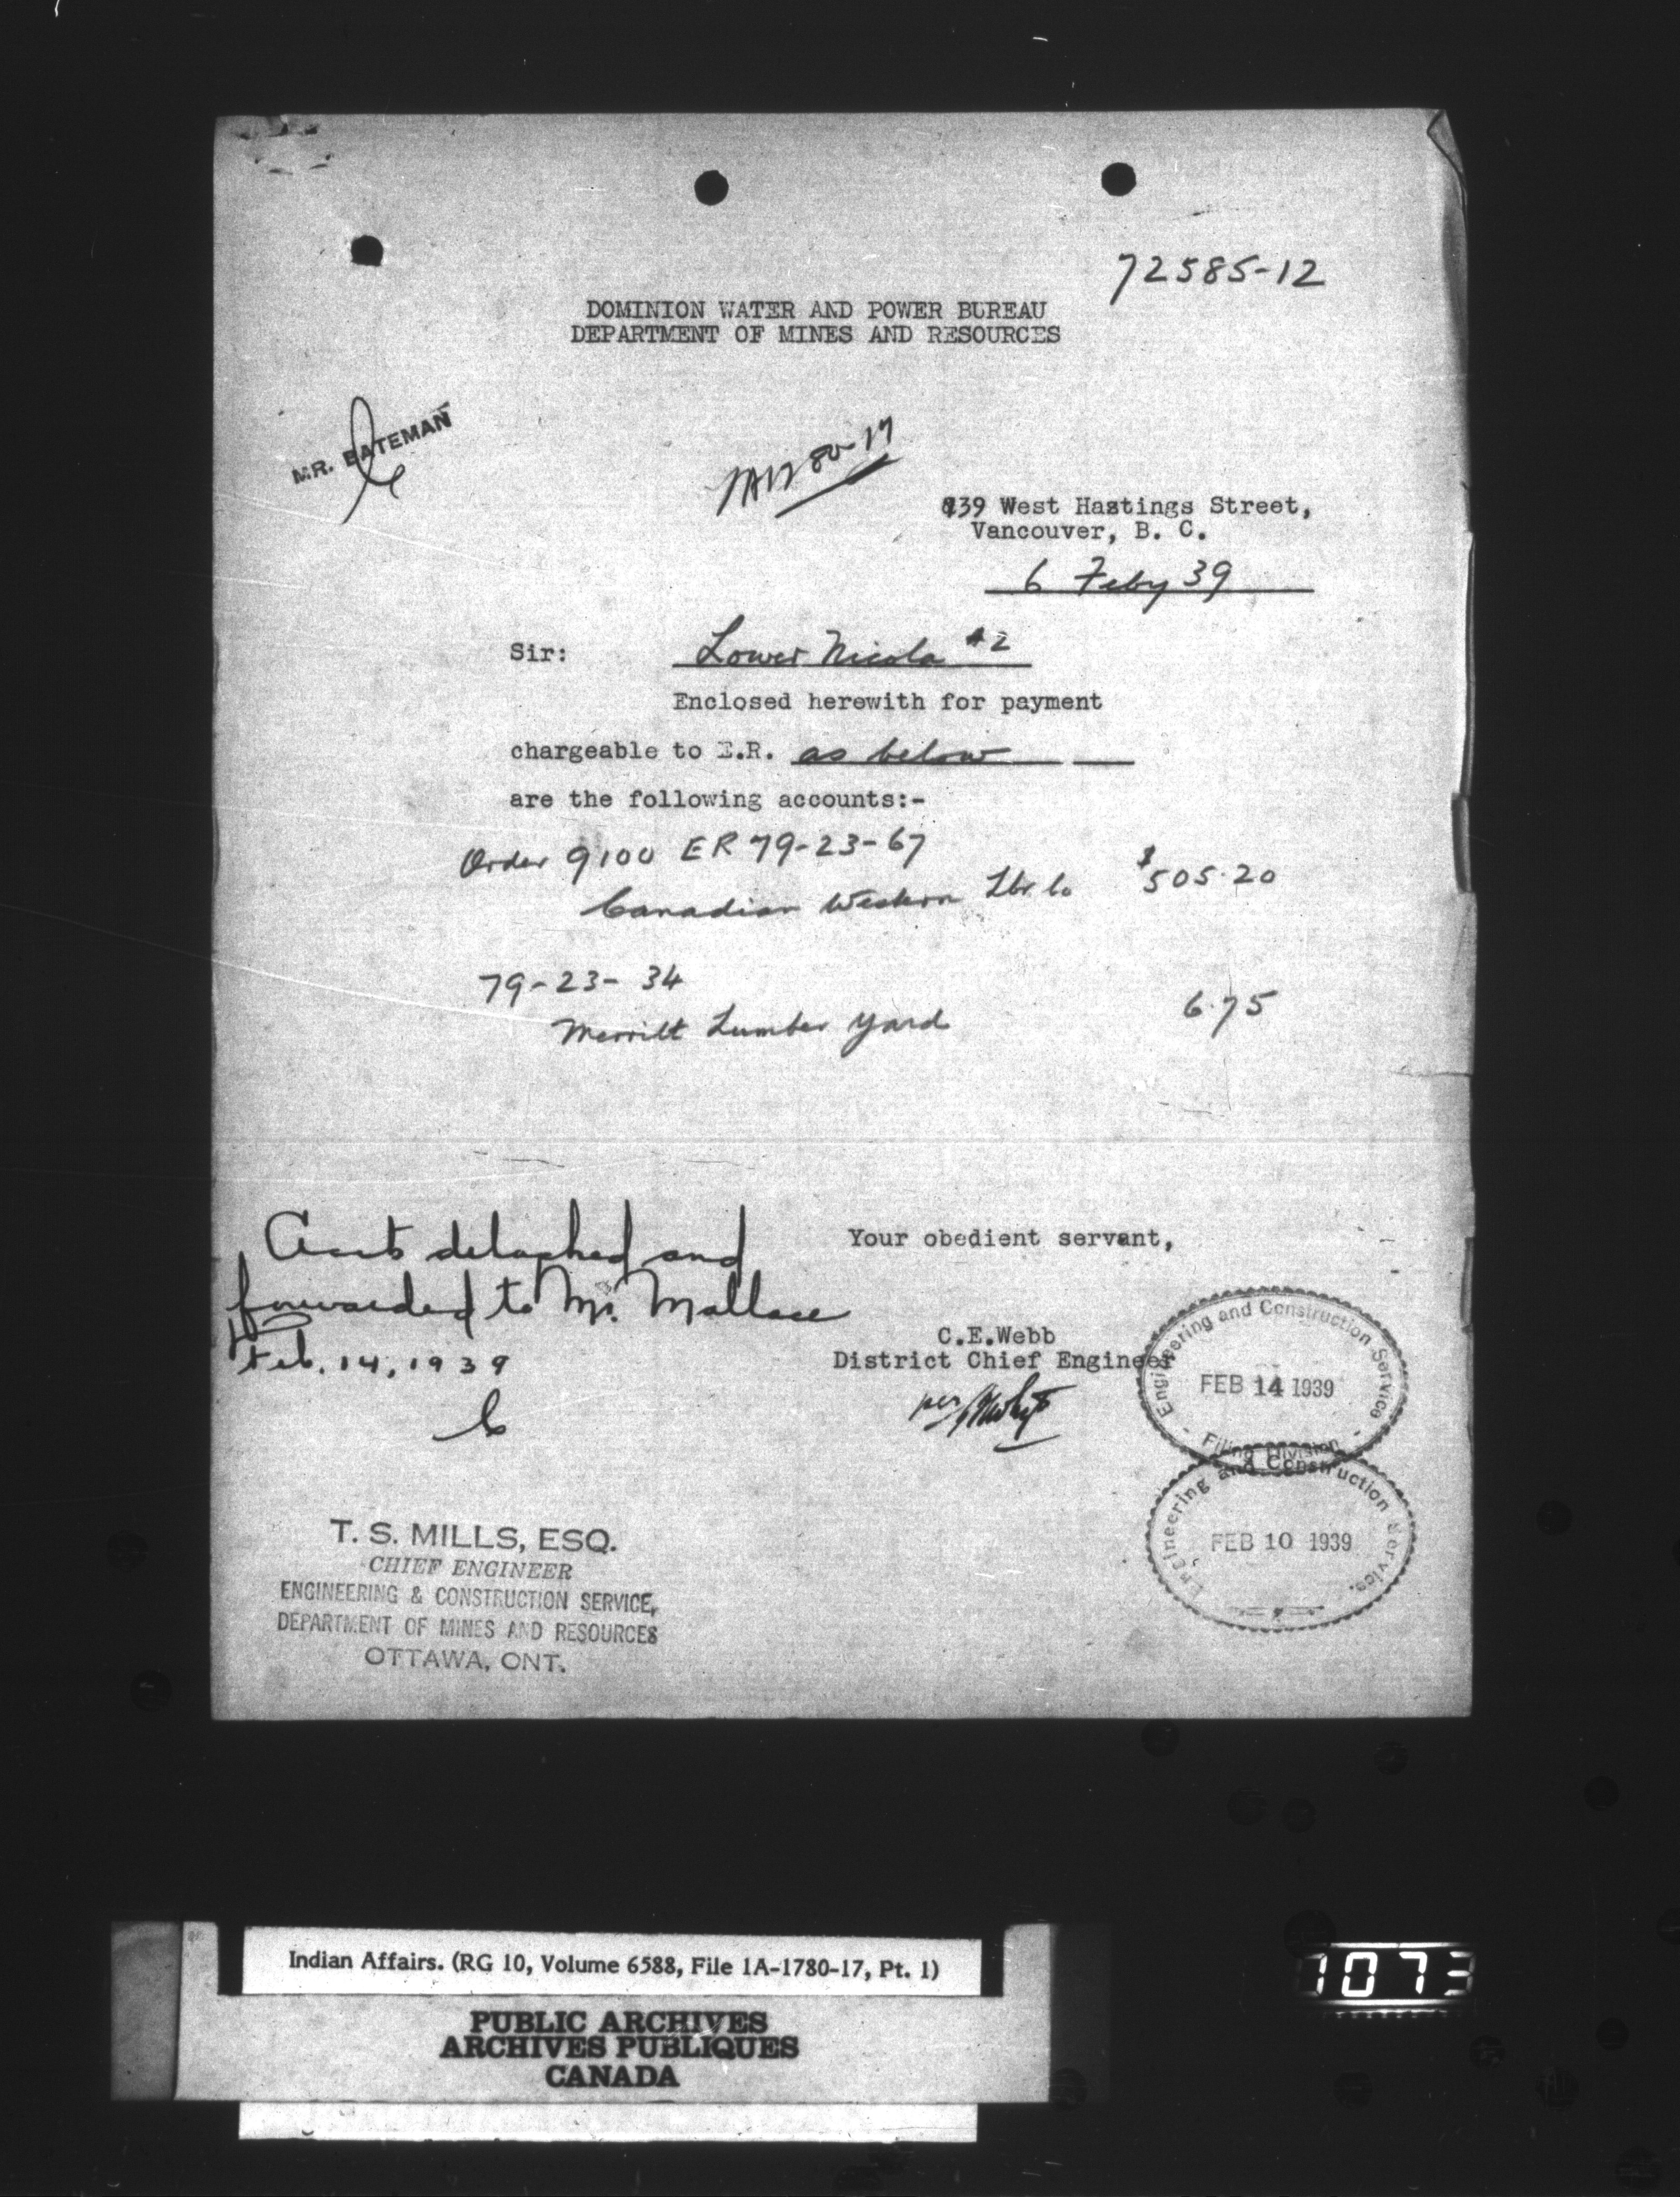 72585-12
DOMINION WATER AND POWER BUREAU
DEPARTMENT OF MINES AND RESOURCES
MR. BATEMAN
80-17
739 West Hastings Street,
Vancouver, B. C.
6 Feby 39
Sir: Lower Nicola #2
Enclosed herewith for payment
chargeable to E.R. as below
are the following accounts:-
Order 9100 ER 79-23-67
Canadian Western Lbr Co $505.20
79-23-34
Merritt Lumber Yard 6.75
Accts detached and
forwarded to Mr. Mallace
Feb. 14, 1939
Your obedient servant,
C.E.Webb
District Chief Engineer
per
Engineering and Construction Service
FEB 14 1939
- Filing Division -
Engineering and Construction Service.
FEB 10 1939
T. S. MILLS, ESQ.
CHIEF ENGINEER
ENGINEERING & CONSTRUCTION SERVICE,
DEPARTMENT OF MINES AND RESOURCES
OTTAWA, ONT.
Indian Affairs. (RG 10, Volume 6588, File 1A-1780-17, Pt. 1)
PUBLIC ARCHIVES
ARCHIVES PUBLIQUES
CANADA
1073